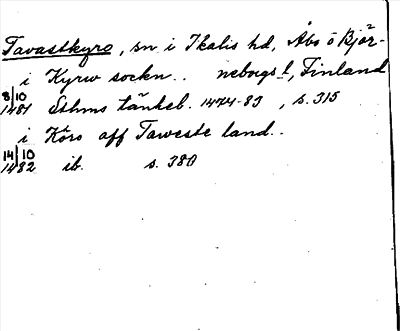 Tavastkyro, sn i Ikalis hd, Åbo o Björ-
i Kyrw sockn.. neborgs l, Finland
8/10 1481 Sthms tänkeb. 1474-83, s. 315
i Köro aff Taweste land..
14/10 1482 ib. s. 380